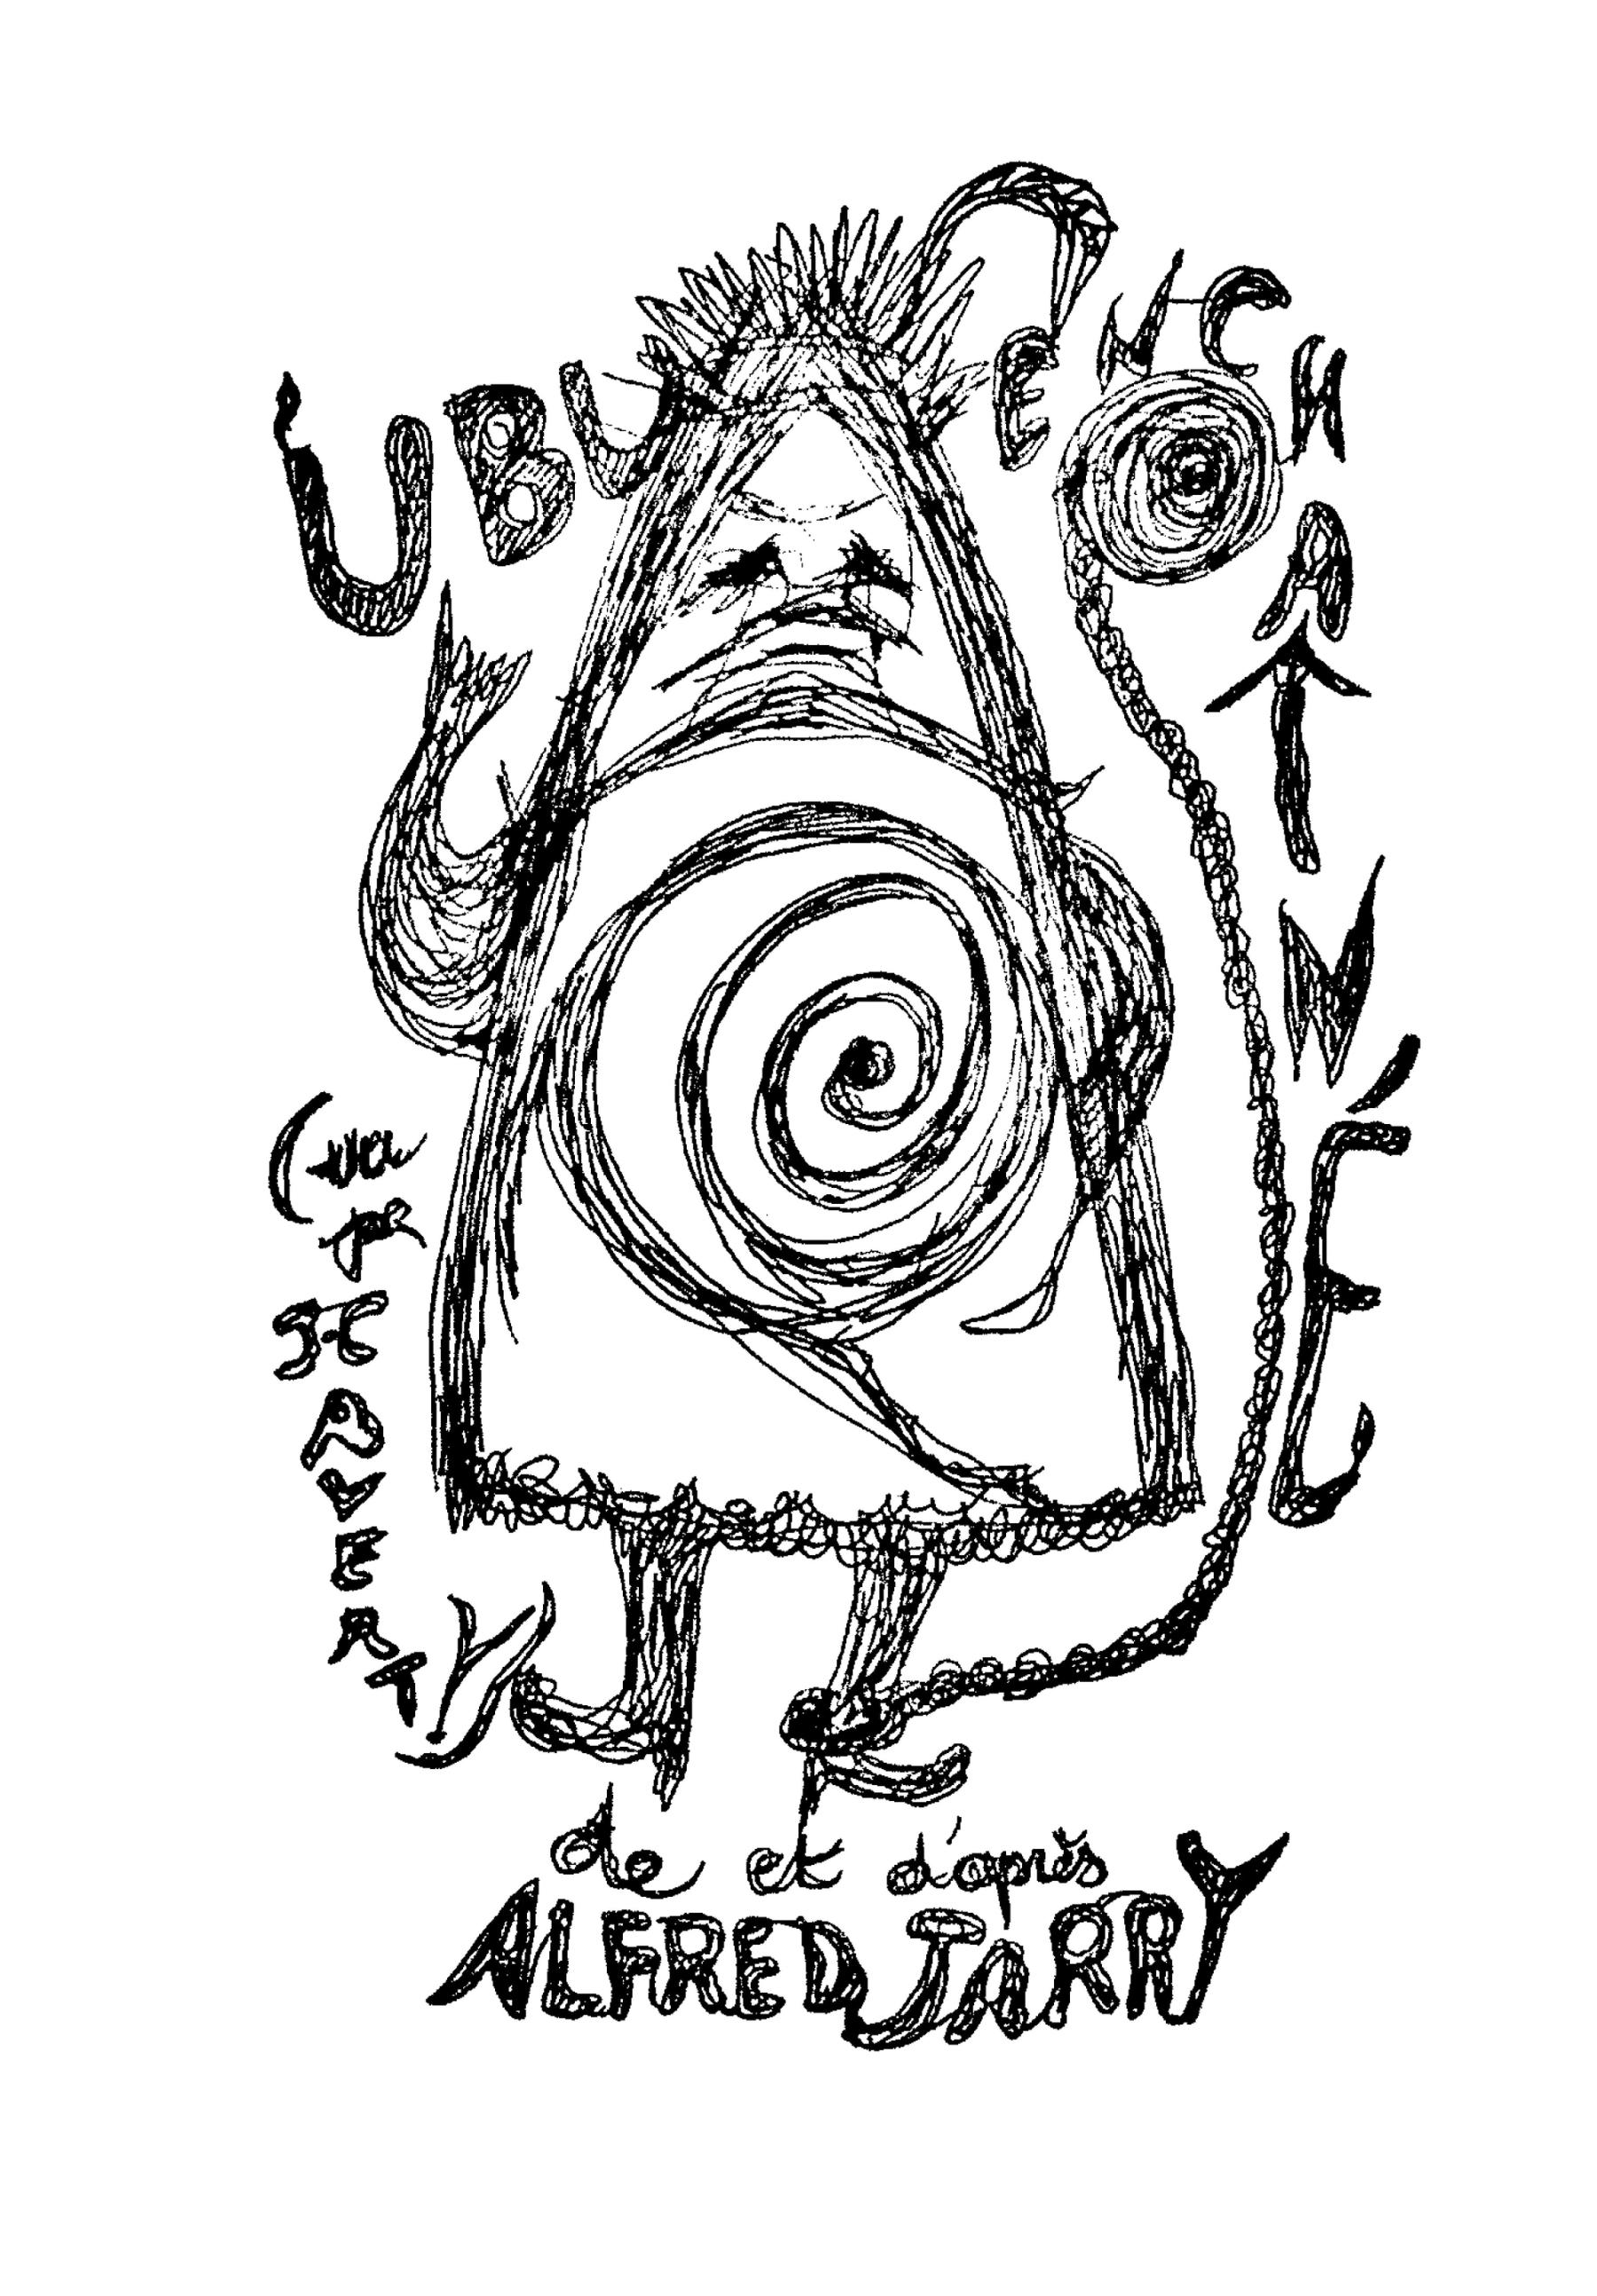 UBU ENCHAÎNÉ
par
J-C
AVERTY)
de et d'après
ALFRED JARRY